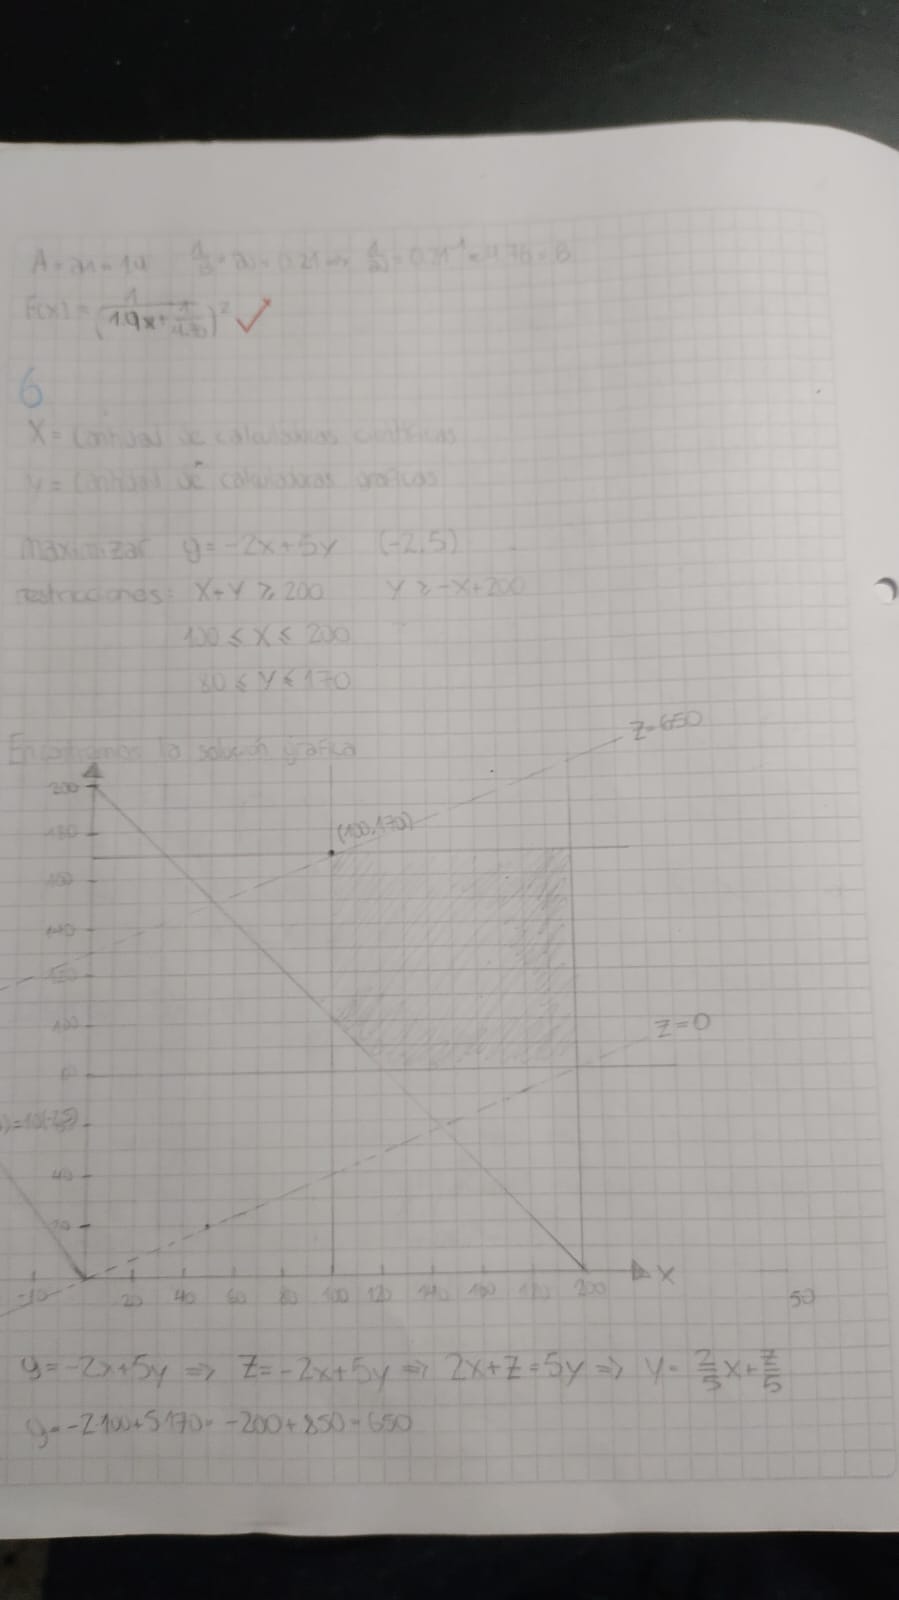 A = m = 1.9 = 0.21 = 0.21⁻¹ = 4.76 = B
F(x) = 1 / (1.9x + 1/4.76)² ✓
6
X = Cantidad de calculadoras científicas
Y = Cantidad de calculadoras graficas
Maximizar y = -2x + 5y (-2,5)
restricciones: X + Y ≥ 200 Y ≥ -X + 200
100 ≤ X ≤ 200
80 ≤ Y ≤ 170
Encontramos la solución grafica
Z=650
200
(100,170)
180
160
140
100
Z=0
40
20
-10 20 40 60 80 100 120 140 160 180 200 X
50
y = -2x + 5y ⇒ Z = -2x + 5y ⇒ 2x + Z = 5y ⇒ Y = 2/5 x + Z/5
y = -2·100 + 5·170 = -200 + 850 = 650